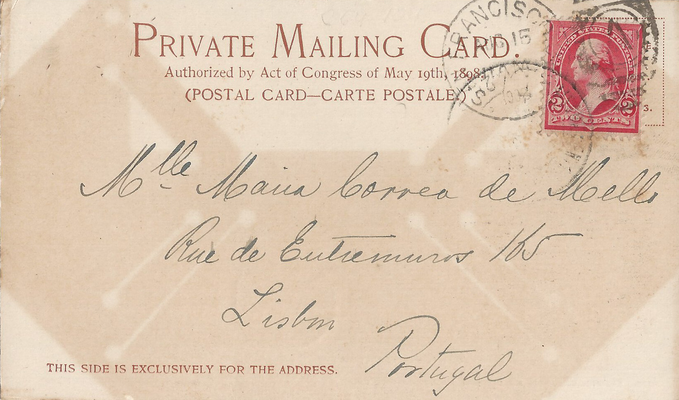 PRIVATE MAILING CARD.
Authorized by Act of Congress of May 19th, 1898.
(POSTAL CARD—CARTE POSTALE)
FRANCISCO
15
2 2
TWO CENTS
3.
Mlle Maria Correa de Mello
Rue de Entremuros 165
Lisbon
Portugal
THIS SIDE IS EXCLUSIVELY FOR THE ADDRESS.